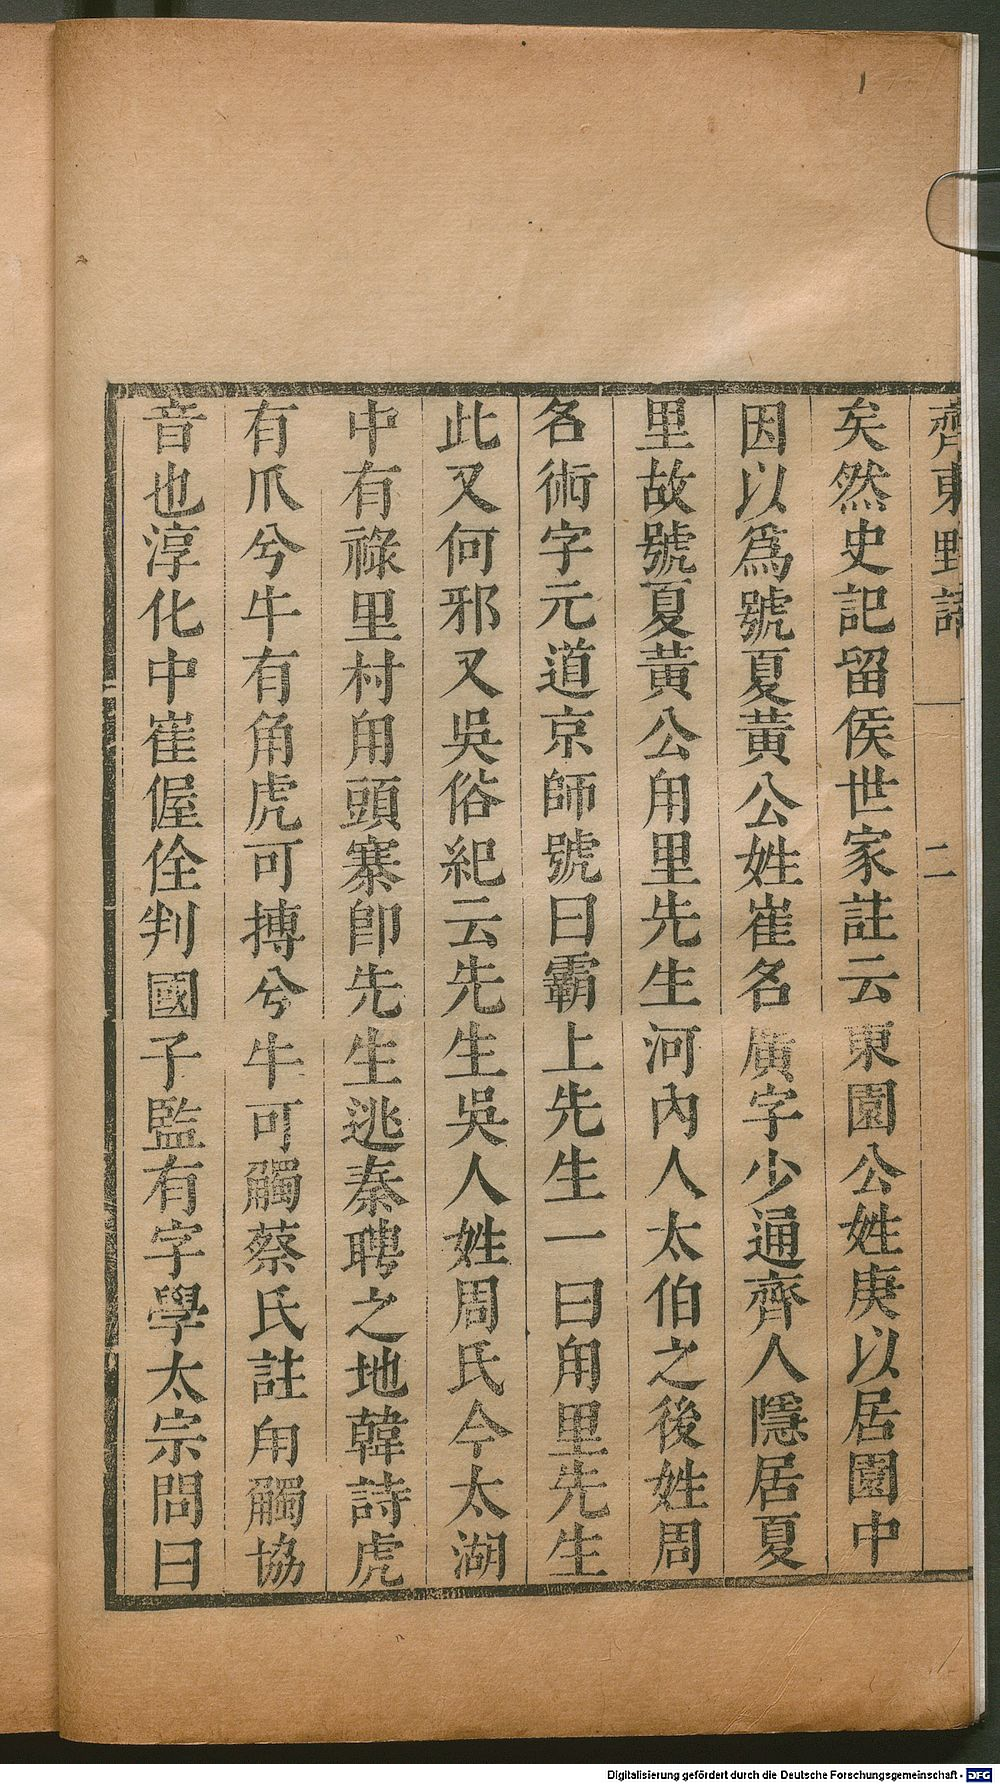 齊東野語 二
矣然史記留侯世家註云東園公姓庚以居園中
因以爲號夏黃公姓崔名廣字少通齊人隱居夏
里故號夏黃公甪里先生河內人太伯之後姓周
名術字元道京師號曰霸上先生一曰甪里先生
此又何邪又吳俗紀云先生吳人姓周氏今太湖
中有祿里村甪頭寨卽先生逃秦聘之地韓詩虎
有爪兮牛有角虎可搏兮牛可觸蔡氏註甪觸協
音也淳化中崔偓佺判國子監有字學太宗問曰
1
Digitalisierung gefördert durch die Deutsche Forschungsgemeinschaft - DFG